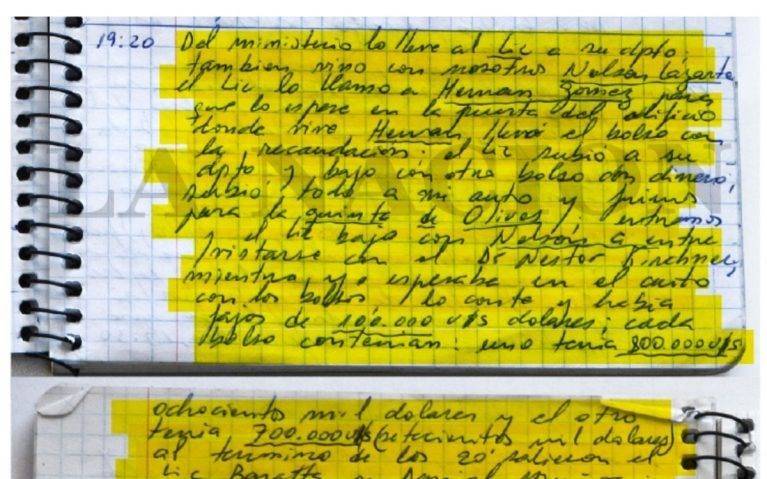 19:20 Del miministerio lo lleve al Lic a su dpto,
tambien vino con nosotros Nelson Lazarte
el Lic lo llamo a Hernan Gomez para
que lo espere en la puerta del edificio
donde vive Hernan llevó el bolso con
la recaudacion; el Lic subio a su
dpto y bajo con otro bolso con dinero,
subio todo a mi auto y fuimos
para la quinta de Olivos; entramos
y el Lic bajo con Nelson a entre
vistarse con el Dr Nestor Kirchner,
mientras yo esperaba en el auto
con los bolsos, lo conte y habia
fajos de 100.000 u$s dolares; cada
bolso contenian: uno tenia 800.000 u$s
ochocientos mil dolares y el otro
tenia 700.000 u$s (setecientos mil dolares)
al termino de los 20' salieron el
Lic Baratta
LA NACION